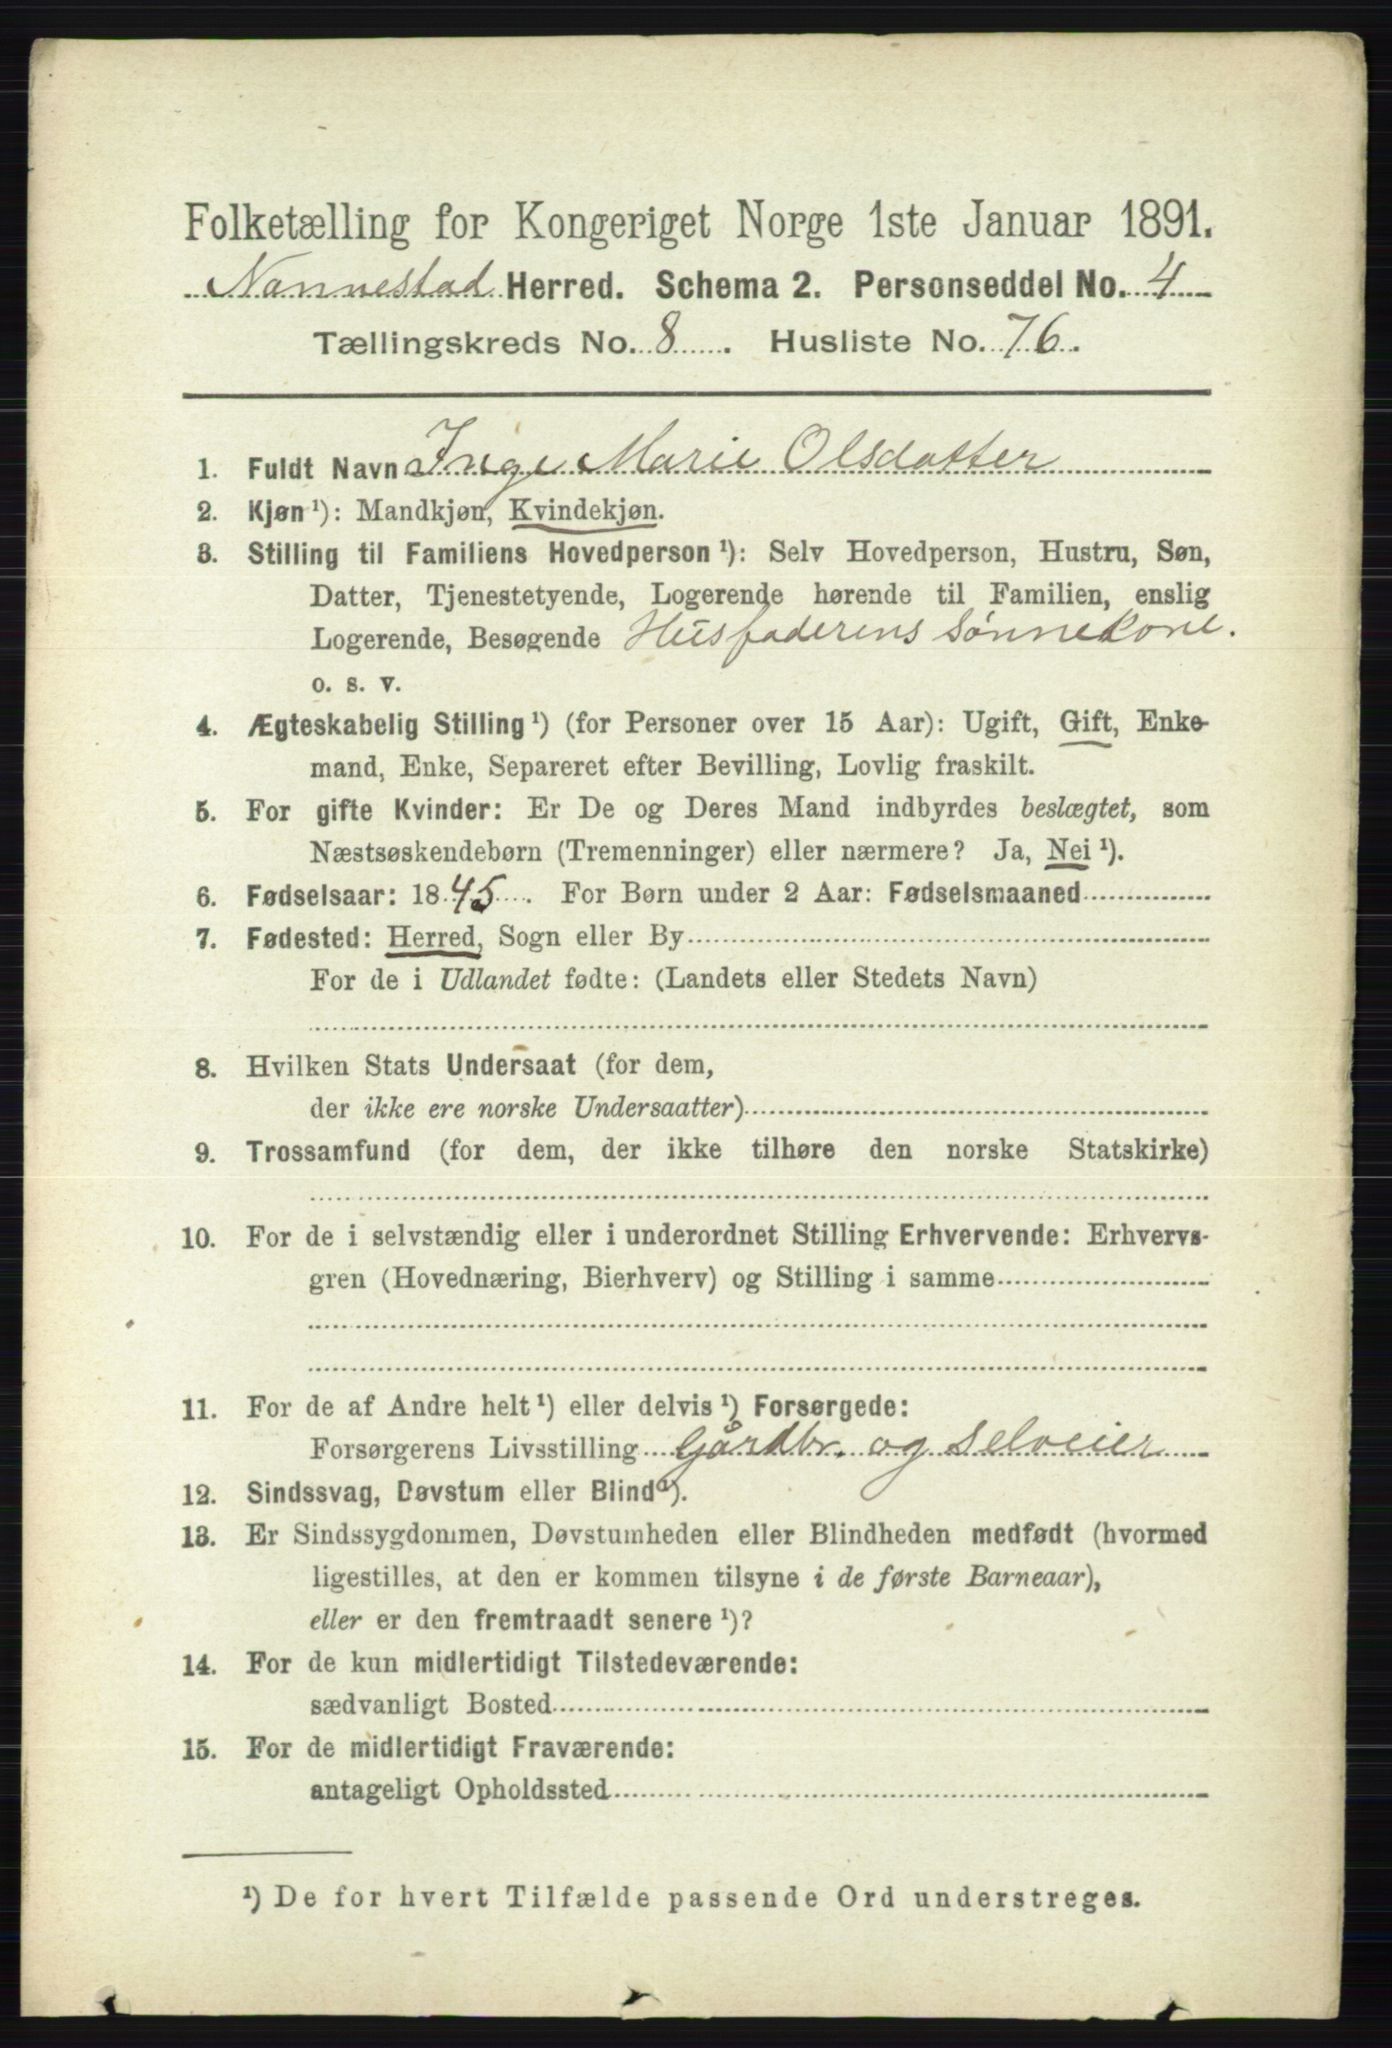 Folketælling for Kongeriget Norge 1ste Januar 1891.
Nannestad Herred. Schema 2. Personseddel No. 4
Tællingskreds No. 8. Husliste No. 76.
1. Fuldt Navn Inge Marie Olsdatter
2. Kjøn ¹): Mandkjøn, Kvindekjøn.
3. Stilling til Familiens Hovedperson ¹): Selv Hovedperson, Hustru, Søn,
Datter, Tjenestetyende, Logerende hørende til Familien, enslig
Logerende, Besøgende Husfaderens Sønnekone.
o. s. v.
4. Ægteskabelig Stilling ¹) (for Personer over 15 Aar): Ugift, Gift, Enke-
mand, Enke, Separeret efter Bevilling, Lovlig fraskilt.
5. For gifte Kvinder: Er De og Deres Mand indbyrdes beslægtet, som
Næstsøskendebørn (Tremenninger) eller nærmere? Ja, Nei ¹).
6. Fødselsaar: 1845. For Børn under 2 Aar: Fødselsmaaned
7. Fødested: Herred, Sogn eller By
For de i Udlandet fødte: (Landets eller Stedets Navn)
8. Hvilken Stats Undersaat (for dem,
der ikke ere norske Undersaatter)
9. Trossamfund (for dem, der ikke tilhøre den norske Statskirke)
10. For de i selvstændig eller i underordnet Stilling Erhvervende: Erhvervs-
gren (Hovednæring, Bierhverv) og Stilling i samme
11. For de af Andre helt ¹) eller delvis ¹) Forsørgede:
Forsørgerens Livsstilling Gårdbr. og selveier
12. Sindssvag, Døvstum eller Blind ¹).
13. Er Sindssygdommen, Døvstumheden eller Blindheden medfødt (hvormed
ligestilles, at den er kommen tilsyne i de første Barneaar),
eller er den fremtraadt senere ¹)?
14. For de kun midlertidigt Tilstedeværende:
sædvanligt Bosted
15. For de midlertidigt Fraværende:
antageligt Opholdssted
¹) De for hvert Tilfælde passende Ord understreges.